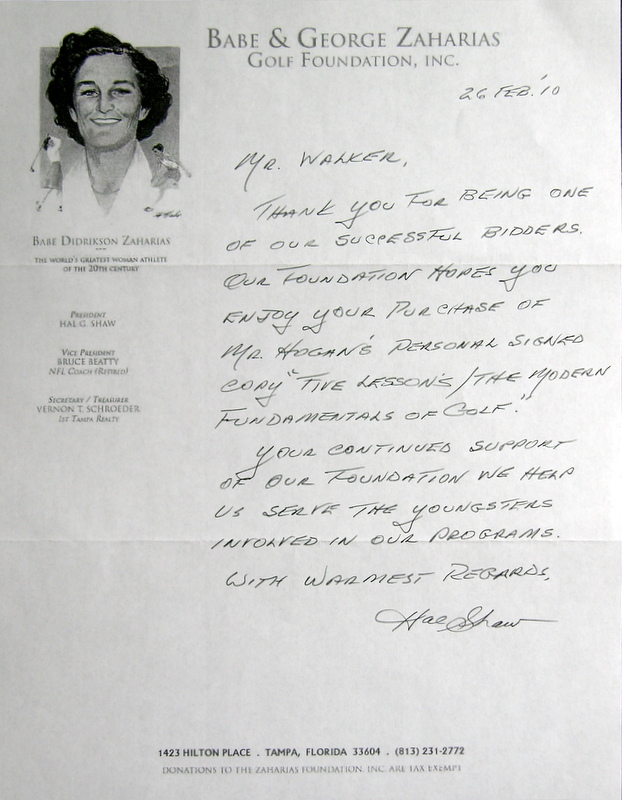 BABE & GEORGE ZAHARIAS
GOLF FOUNDATION, INC.
26 FEB. '10
MR. WALKER,
THANK YOU FOR BEING ONE
OF OUR SUCCESSFUL BIDDERS.
OUR FOUNDATION HOPES YOU
ENJOY YOUR PURCHASE OF
MR. HOGAN'S PERSONAL SIGNED
COPY "FIVE LESSON'S / THE MODERN
FUNDAMENTALS OF GOLF."
YOUR CONTINUED SUPPORT
OF OUR FOUNDATION WE HELP
US SERVE THE YOUNGSTERS
INVOLVED IN OUR PROGRAMS.
WITH WARMEST REGARDS,
Hal Shaw
BABE DIDRIKSON ZAHARIAS
THE WORLD'S GREATEST WOMAN ATHLETE
OF THE 20TH CENTURY
PRESIDENT
HAL G. SHAW
VICE PRESIDENT
BRUCE BEATTY
NFL COACH (RETIRED)
SECRETARY / TREASURER
VERNON T. SCHROEDER
1ST TAMPA REALTY
1423 HILTON PLACE . TAMPA, FLORIDA 33604 . (813) 231-2772
DONATIONS TO THE ZAHARIAS FOUNDATION, INC. ARE TAX EXEMPT